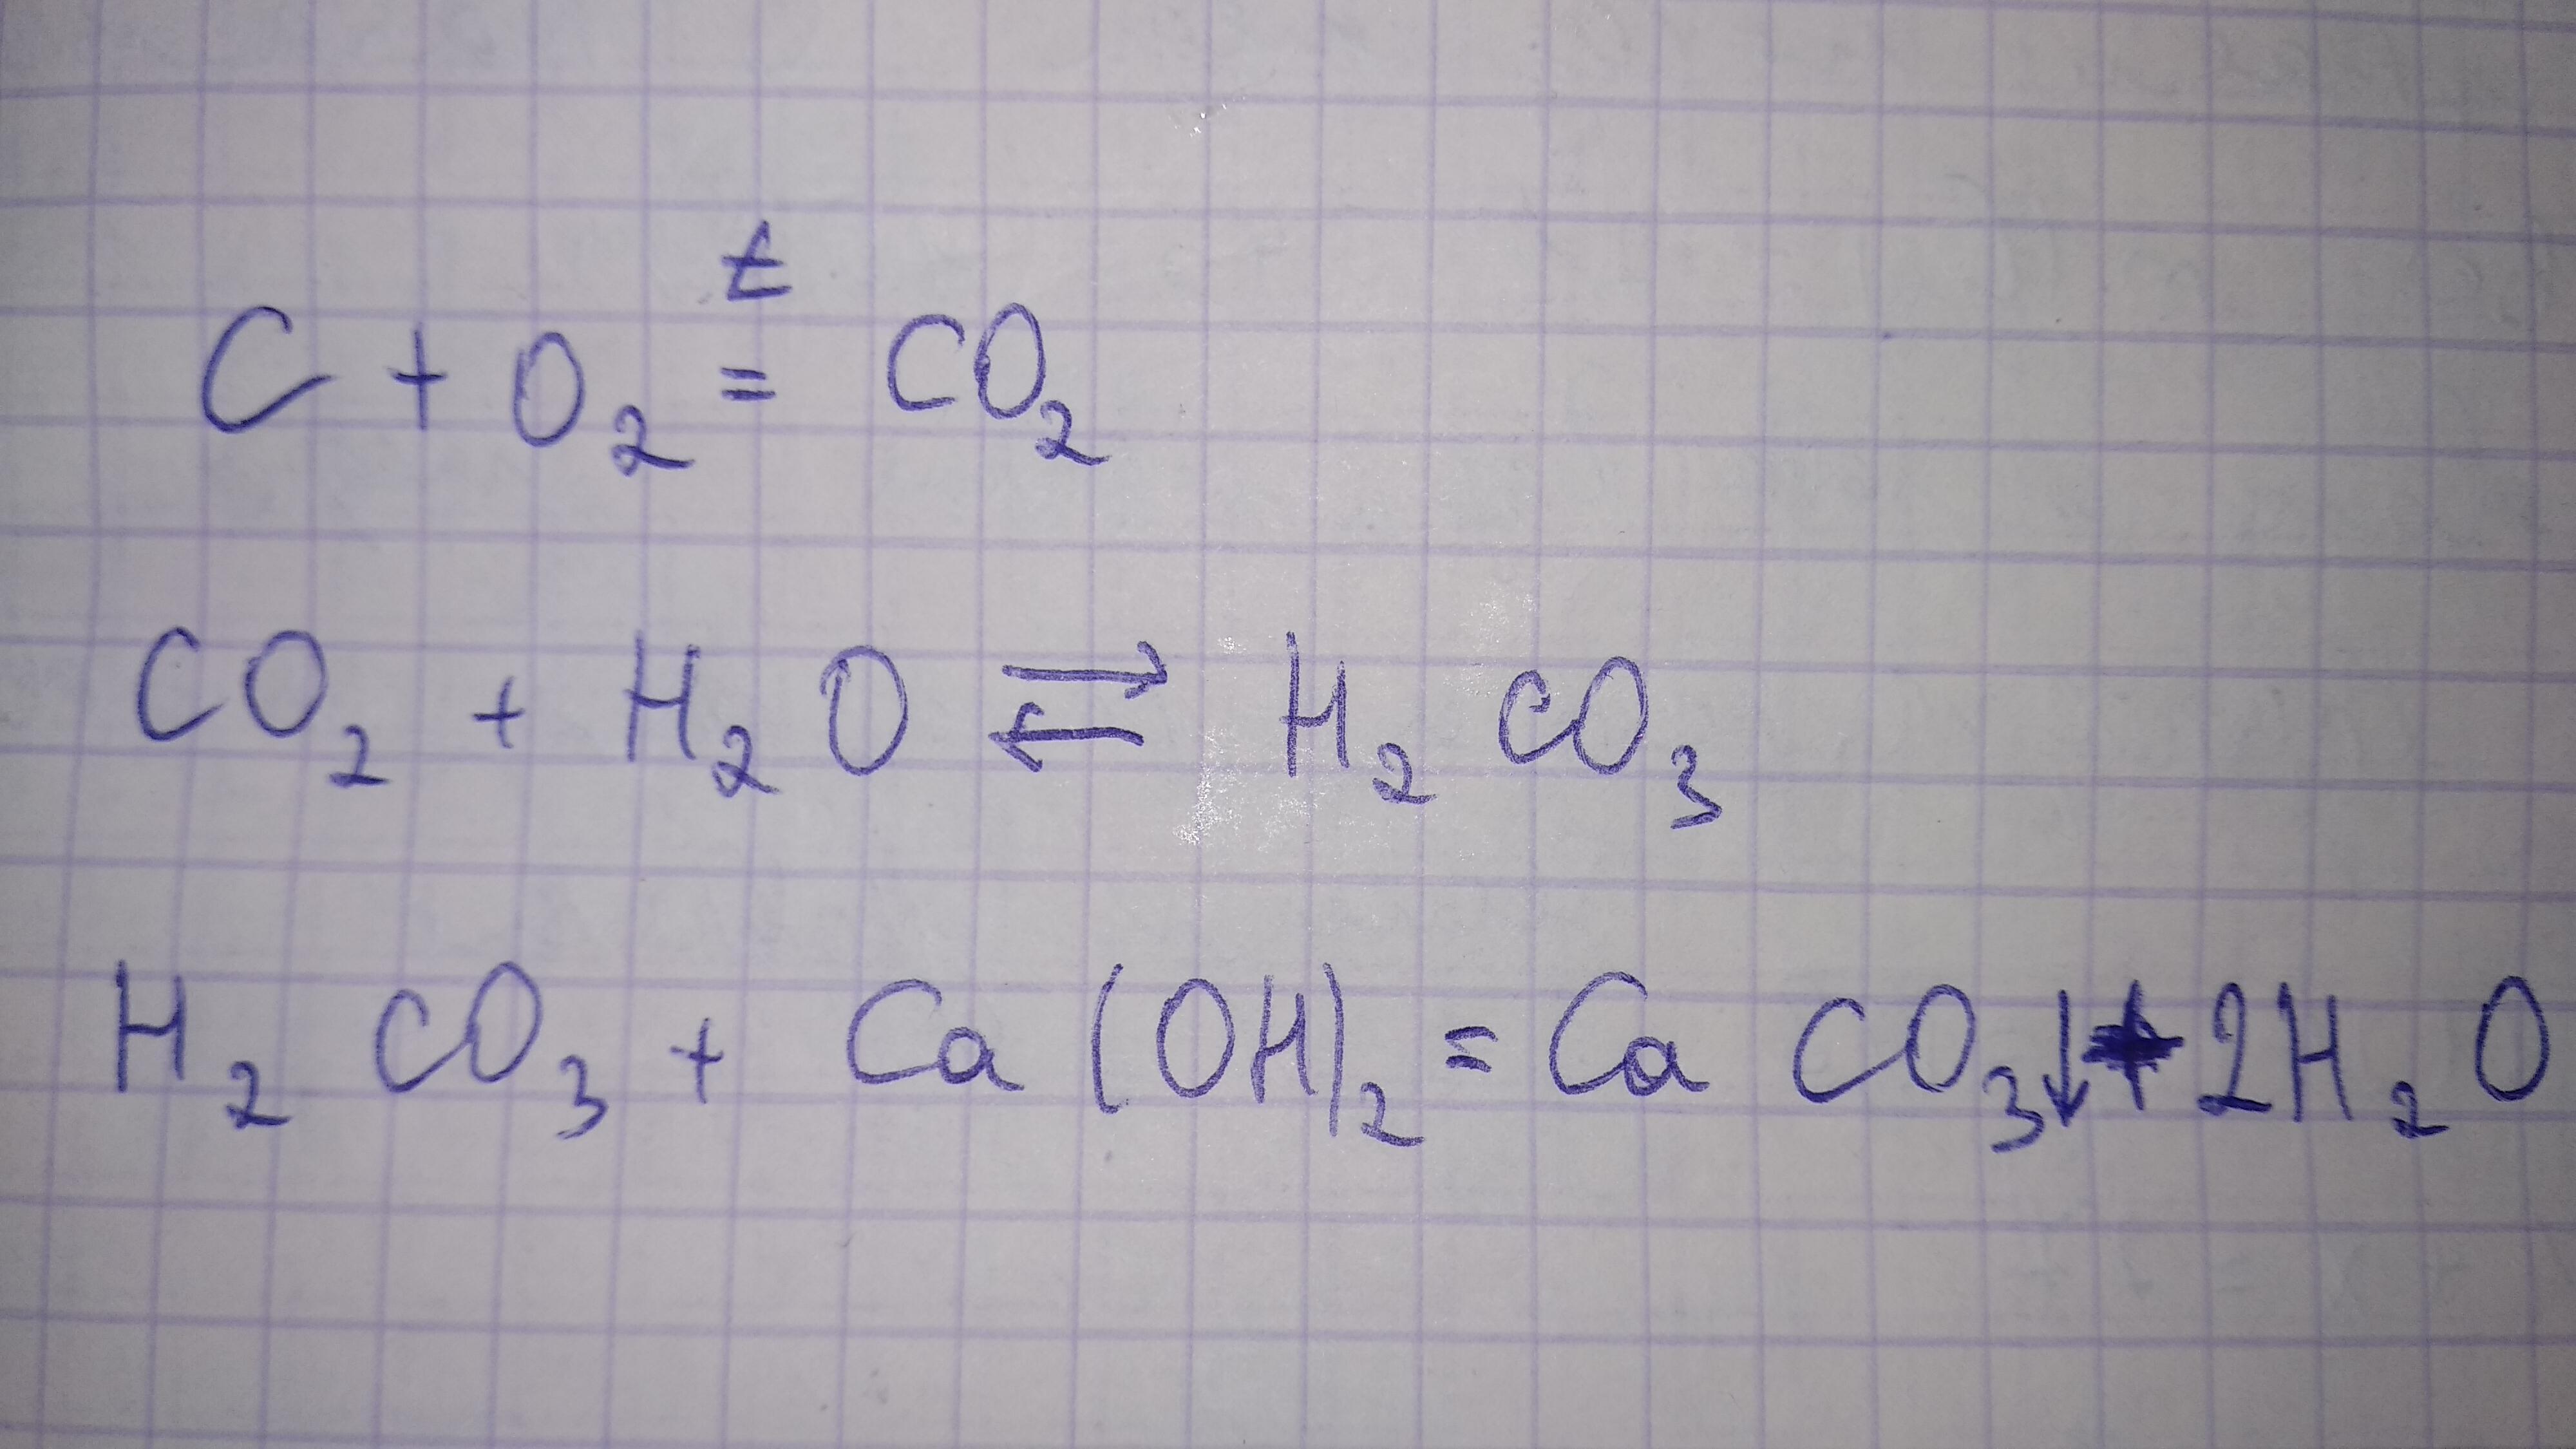 C + O₂ =ᵗ CO₂
CO₂ + H₂O ⇄ H₂CO₃
H₂CO₃ + Ca(OH)₂ = CaCO₃↓ + 2H₂O